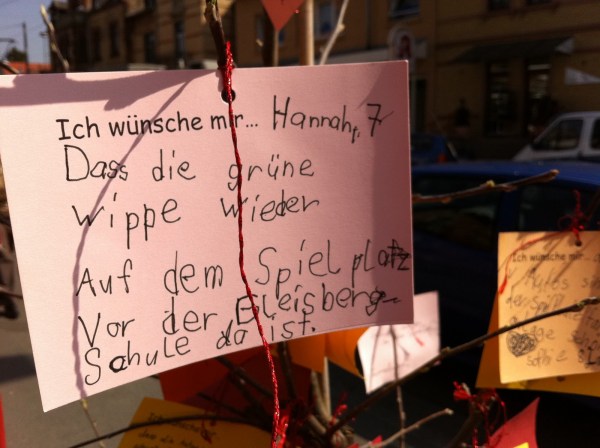 Ich wünsche mir... Hannah, 7
Dass die grüne
wippe wieder
Auf dem Spielplatz
Vor der Eleisberg
Schule da ist.
Ich wünsche mir...